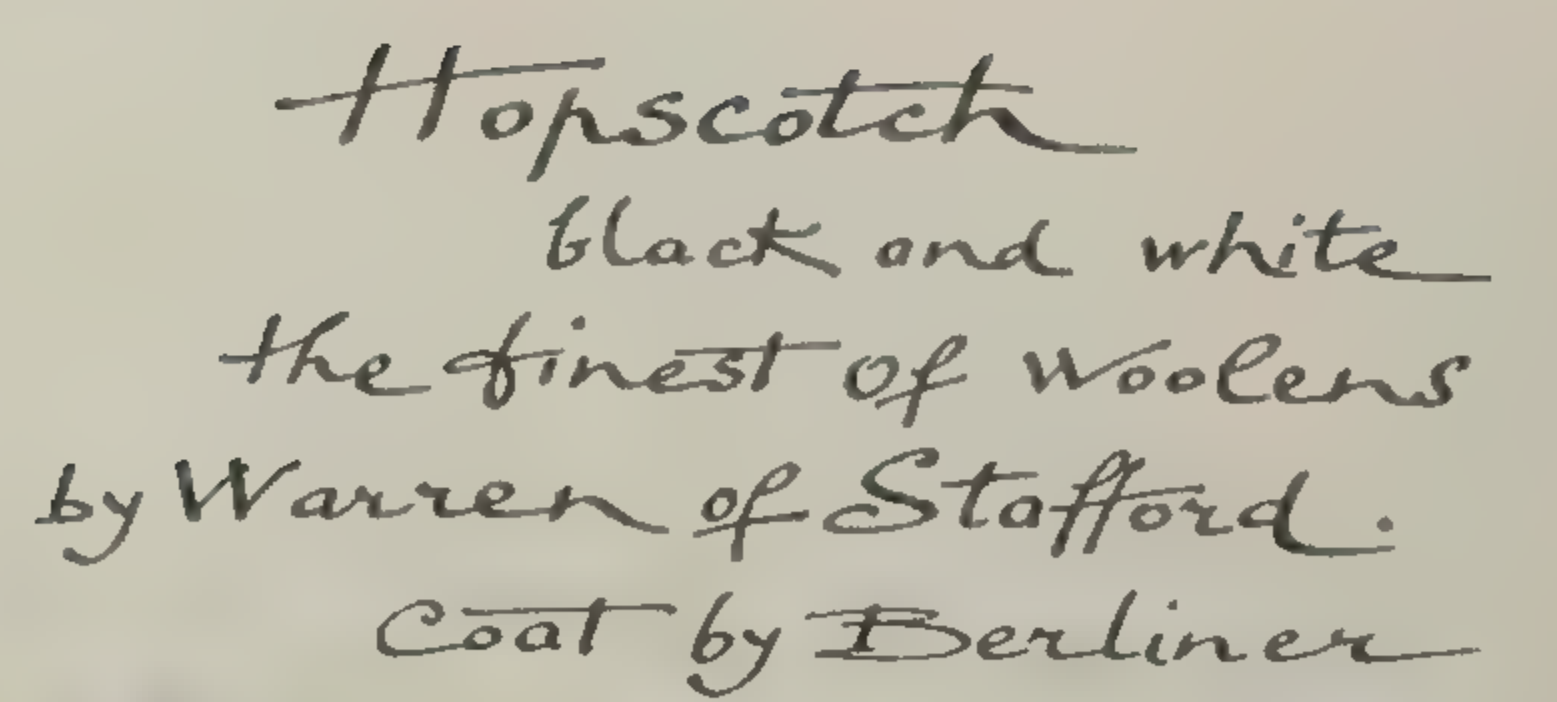 Hopscotch
black and white
the finest of Woolens
by Warren of Stafford.
Coat by Berliner